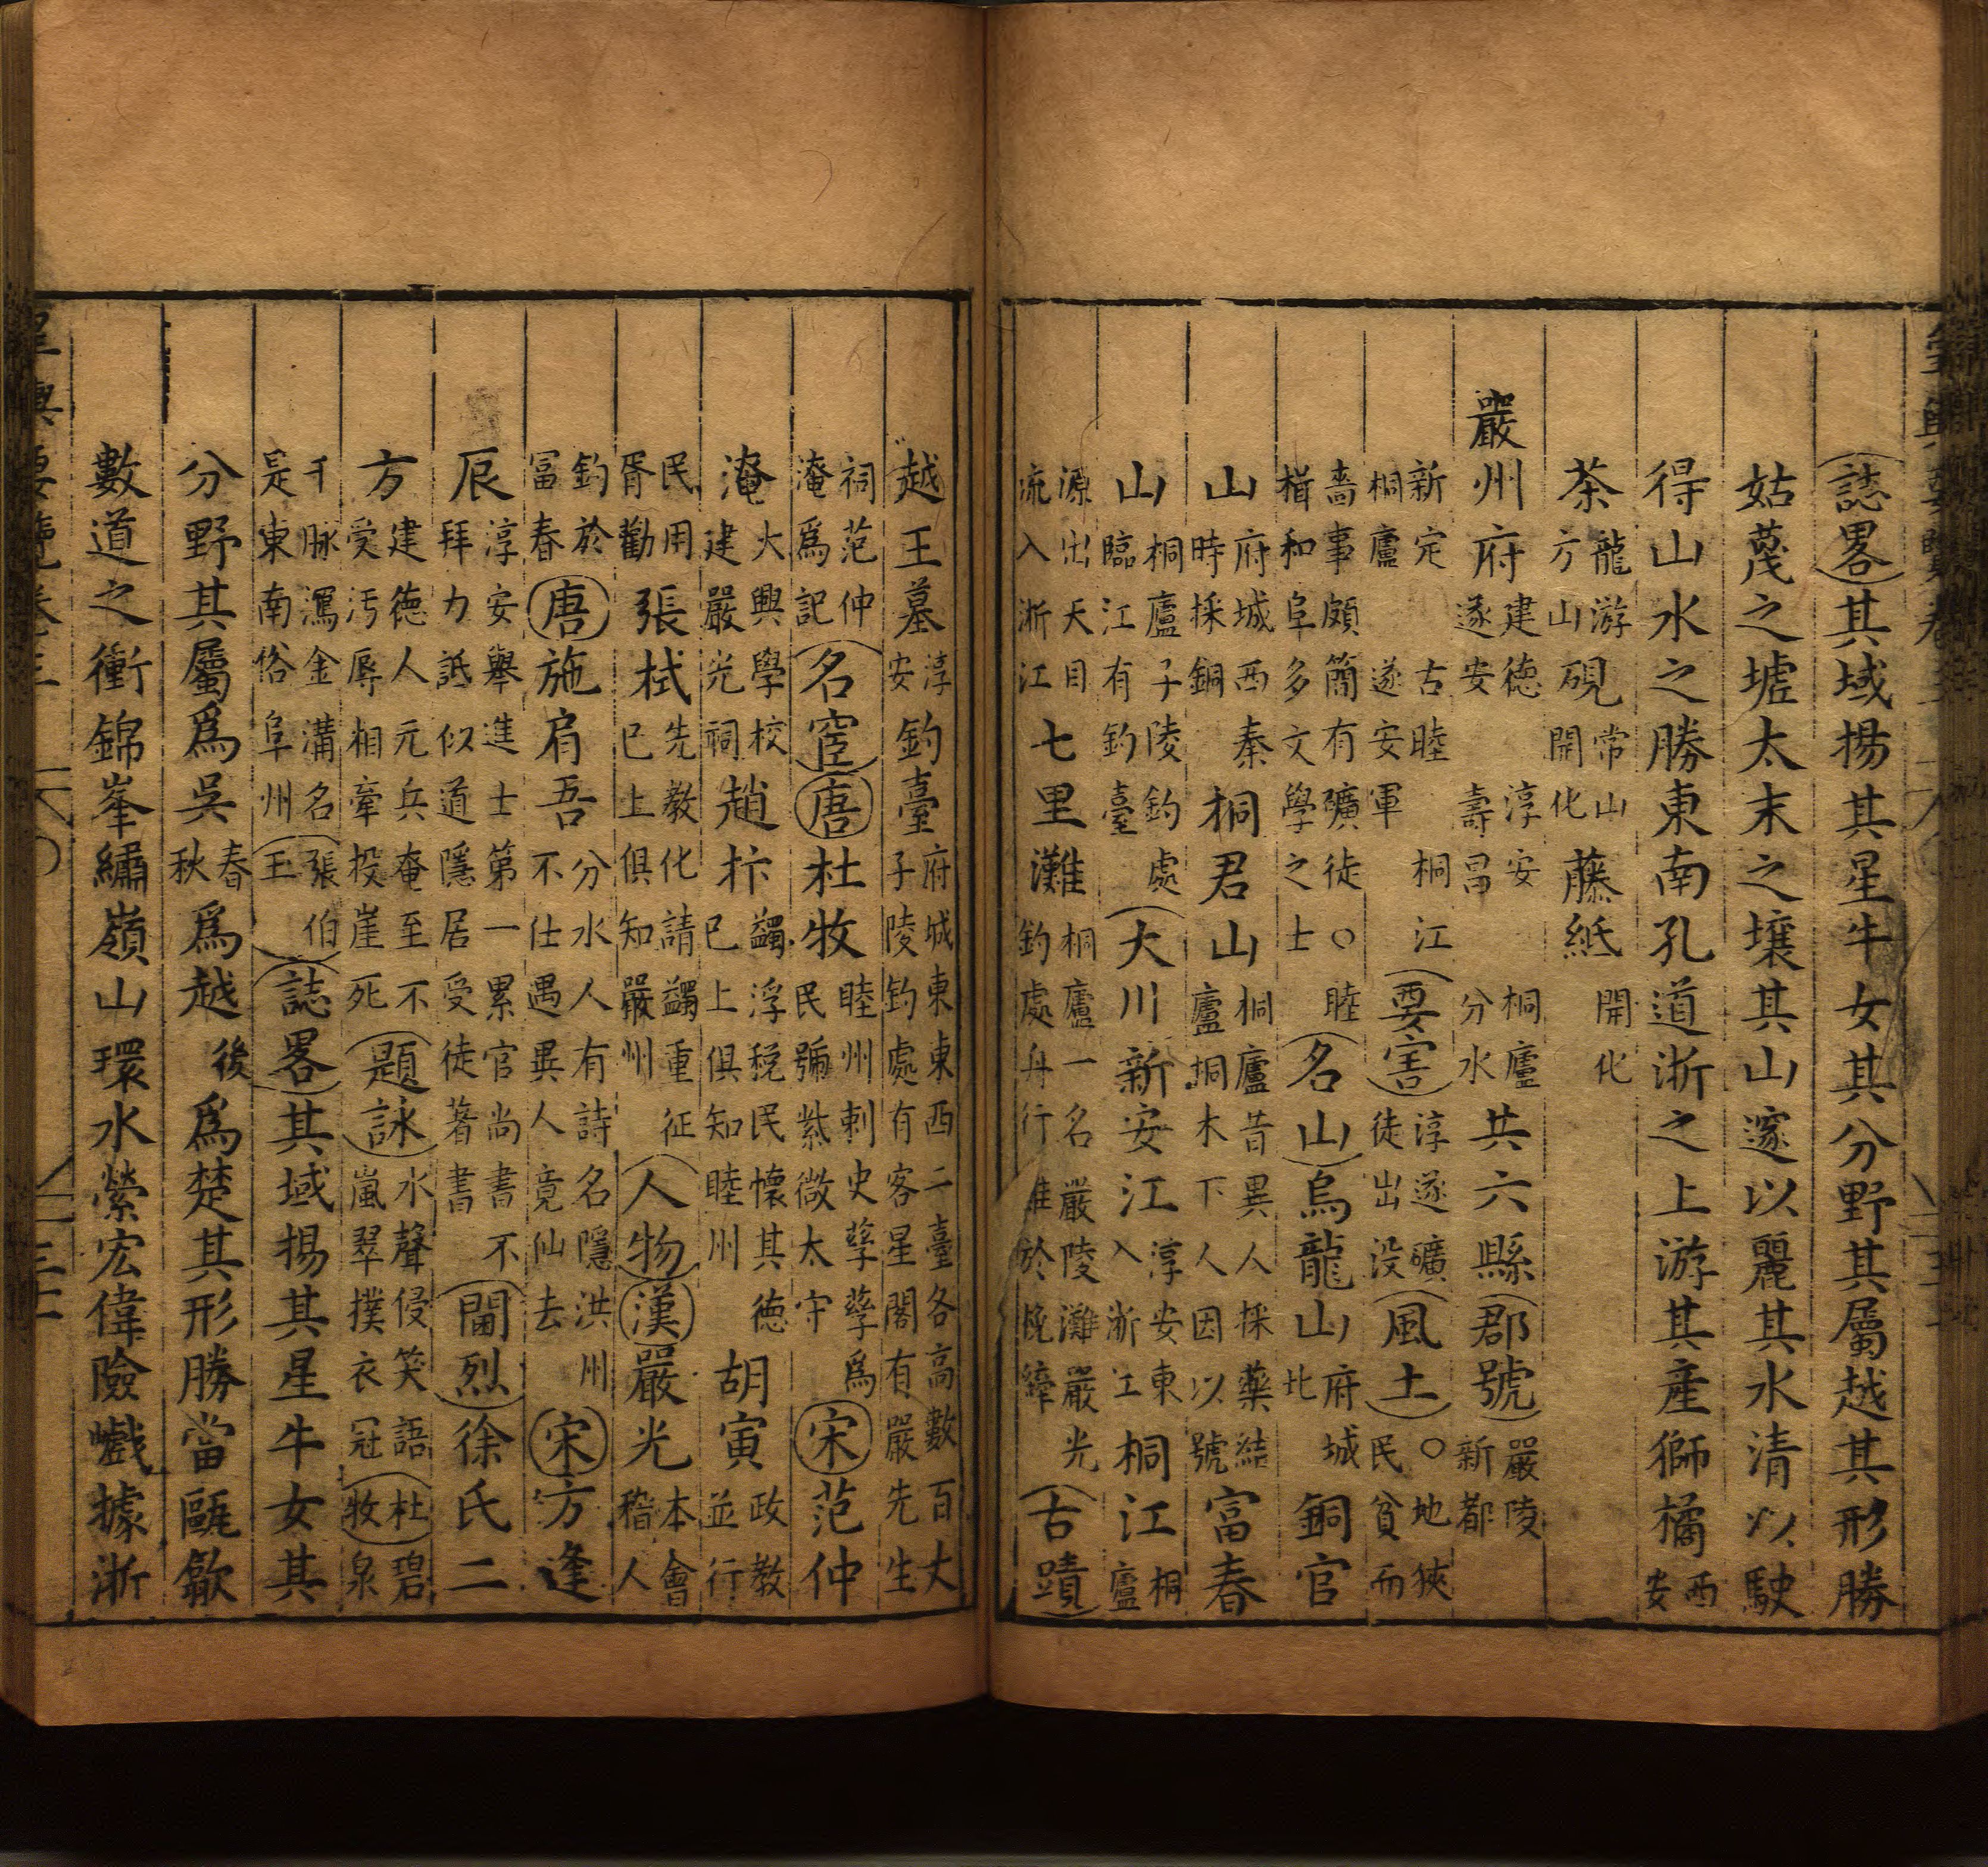 誌畧其域揚其星牛女其分野其屬越其形勝
姑蔑之墟太末之壤其山邃以麗其水清以駛
得山水之勝東南孔道浙之上游其産獅橘西安
茶龍游方山硯常山開化藤紙開化
嚴州府建德遂安淳安壽昌桐廬分水共六縣郡號嚴陵新都
新定古睦桐江桐廬遂安軍要害淳遂礦徒出没風土○地狹民貧而
嗇事頗簡有礦徒○睦楷和阜多文學之士名山烏龍山府城北銅官
山府城西秦時採銅桐君山桐廬昔異人採藥結廬桐木下人因以號富春
山桐廬子陵釣處臨江有釣臺大川新安江淳安東入浙江桐江桐廬
源出天目流入浙江七里灘桐廬一名嚴陵灘嚴光釣處舟行於挽縴古蹟
越王墓淳安釣臺府城東東西二臺各高數百丈子陵釣處有客星閣有嚴先生
祠范仲淹爲記名宦唐杜牧睦州刺史孳孳爲民號紫微太守宋范仲
淹大興學校建嚴光祠趙抃蠲浮稅民懷其德已上俱知睦州胡寅政教並行
民用胥勸張栻先教化請蠲重征已上俱知嚴州人物漢嚴光本會稽人
釣於富春唐施肩吾分水人有詩名隱洪州不仕遇異人竟仙去宋方逢
辰淳安舉進士第一累官尚書不拜力詆似道隱居受徒著書閫烈徐氏二
方建德人元兵奄至不受汚辱相牽投崖死題詠水聲侵笑語嵐翠撲衣冠杜牧碧泉
千脉瀉金溝名是東南俗阜州張伯玉誌畧其域揚其星牛女其
分野其屬爲吳春秋爲越後爲楚其形勝當甌歙
數道之衝錦峯繡嶺山環水縈宏偉險巇據浙